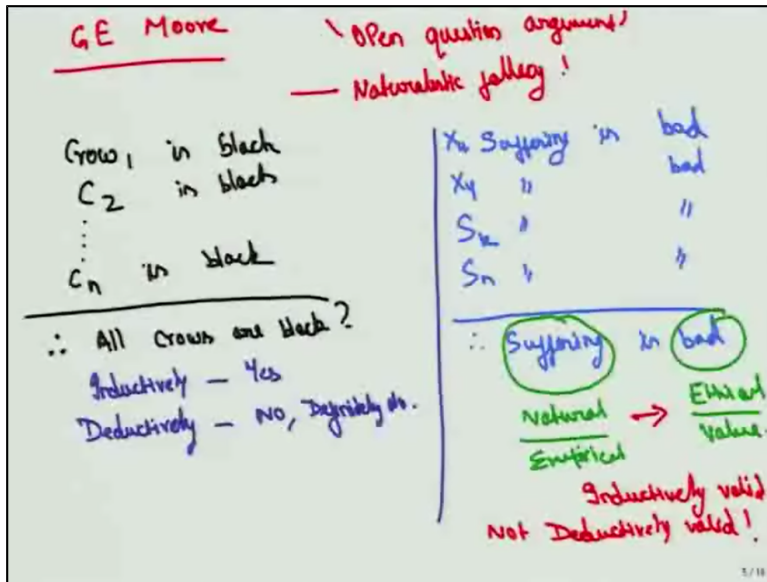 GE Moore
Open question argument!
— Naturalistic fallacy!
Crow₁ is black
C₂ is black
Cₙ is black
∴ All Crows are black?
Inductively — Yes
Deductively — NO, Definitely No.
Suffering is bad
Xy " bad
" "
Sₙ " "
∴ Suffering is bad
Natural → Ethical
Empirical Value
Inductively valid
Not Deductively valid!